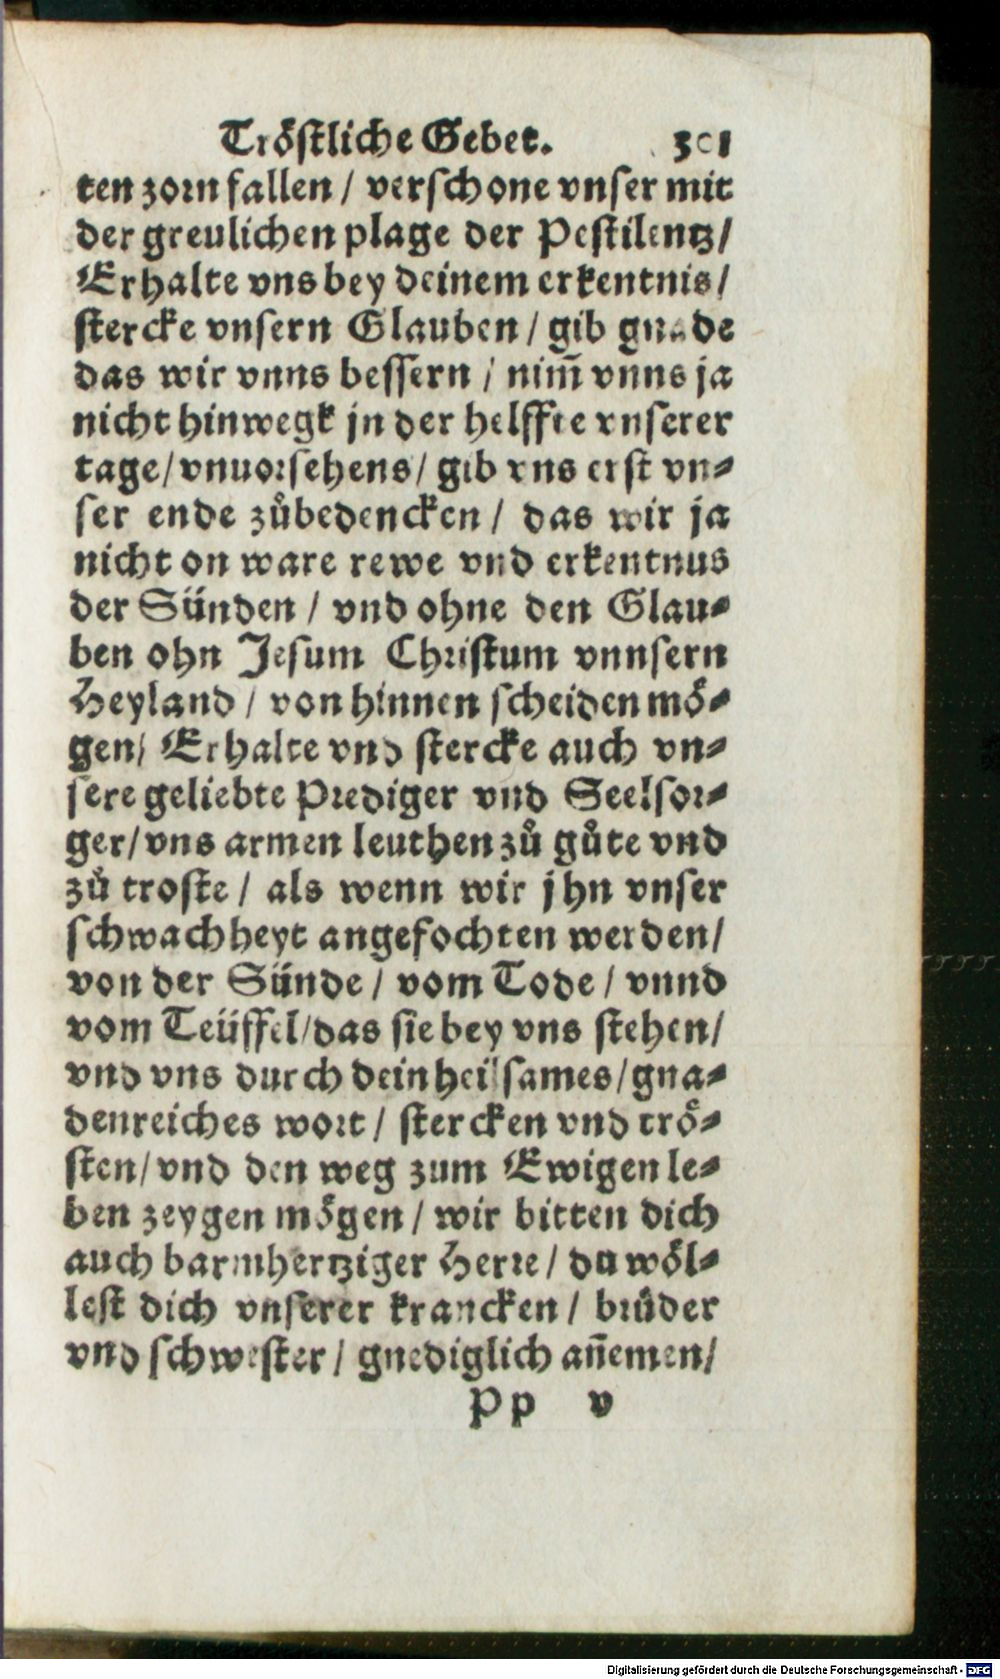 Tröstliche Gebet. 301
ten zorn fallen / verschone vnser mit
der greulichen plage der Pestilentz /
Erhalte vns bey deinem erkentnis /
stercke vnsern Glauben / gib gnade
das wir vnns bessern / nim̃ vnns ja
nicht hinwegk jn der helffte vnserer
tage / vnuorsehens / gib vns erst vn-
ser ende zůbedencken / das wir ja
nicht on ware rewe vnd erkentnus
der Sünden / vnd ohne den Glau-
ben ohn Jesum Christum vnnsern
Heyland / von hinnen scheiden mö-
gen / Erhalte vnd stercke auch vn-
sere geliebte Prediger vnd Seelsor-
ger / vns armen leuthen zů gůte vnd
zů troste / als wenn wir jhn vnser
schwachheyt angefochten werden /
von der Sünde / vom Tode / vnnd
vom Teüffel / das sie bey vns stehen /
vnd vns durch dein heilsames / gna-
denreiches wort / stercken vnd trö-
sten / vnd den weg zum Ewigen le-
ben zeygen mögen / wir bitten dich
auch barmhertziger Herre / du wöl-
lest dich vnserer krancken / brüder
vnd schwester / gnediglich an̄emen /
Pp v
Digitalisierung gefördert durch die Deutsche Forschungsgemeinschaft - DFG